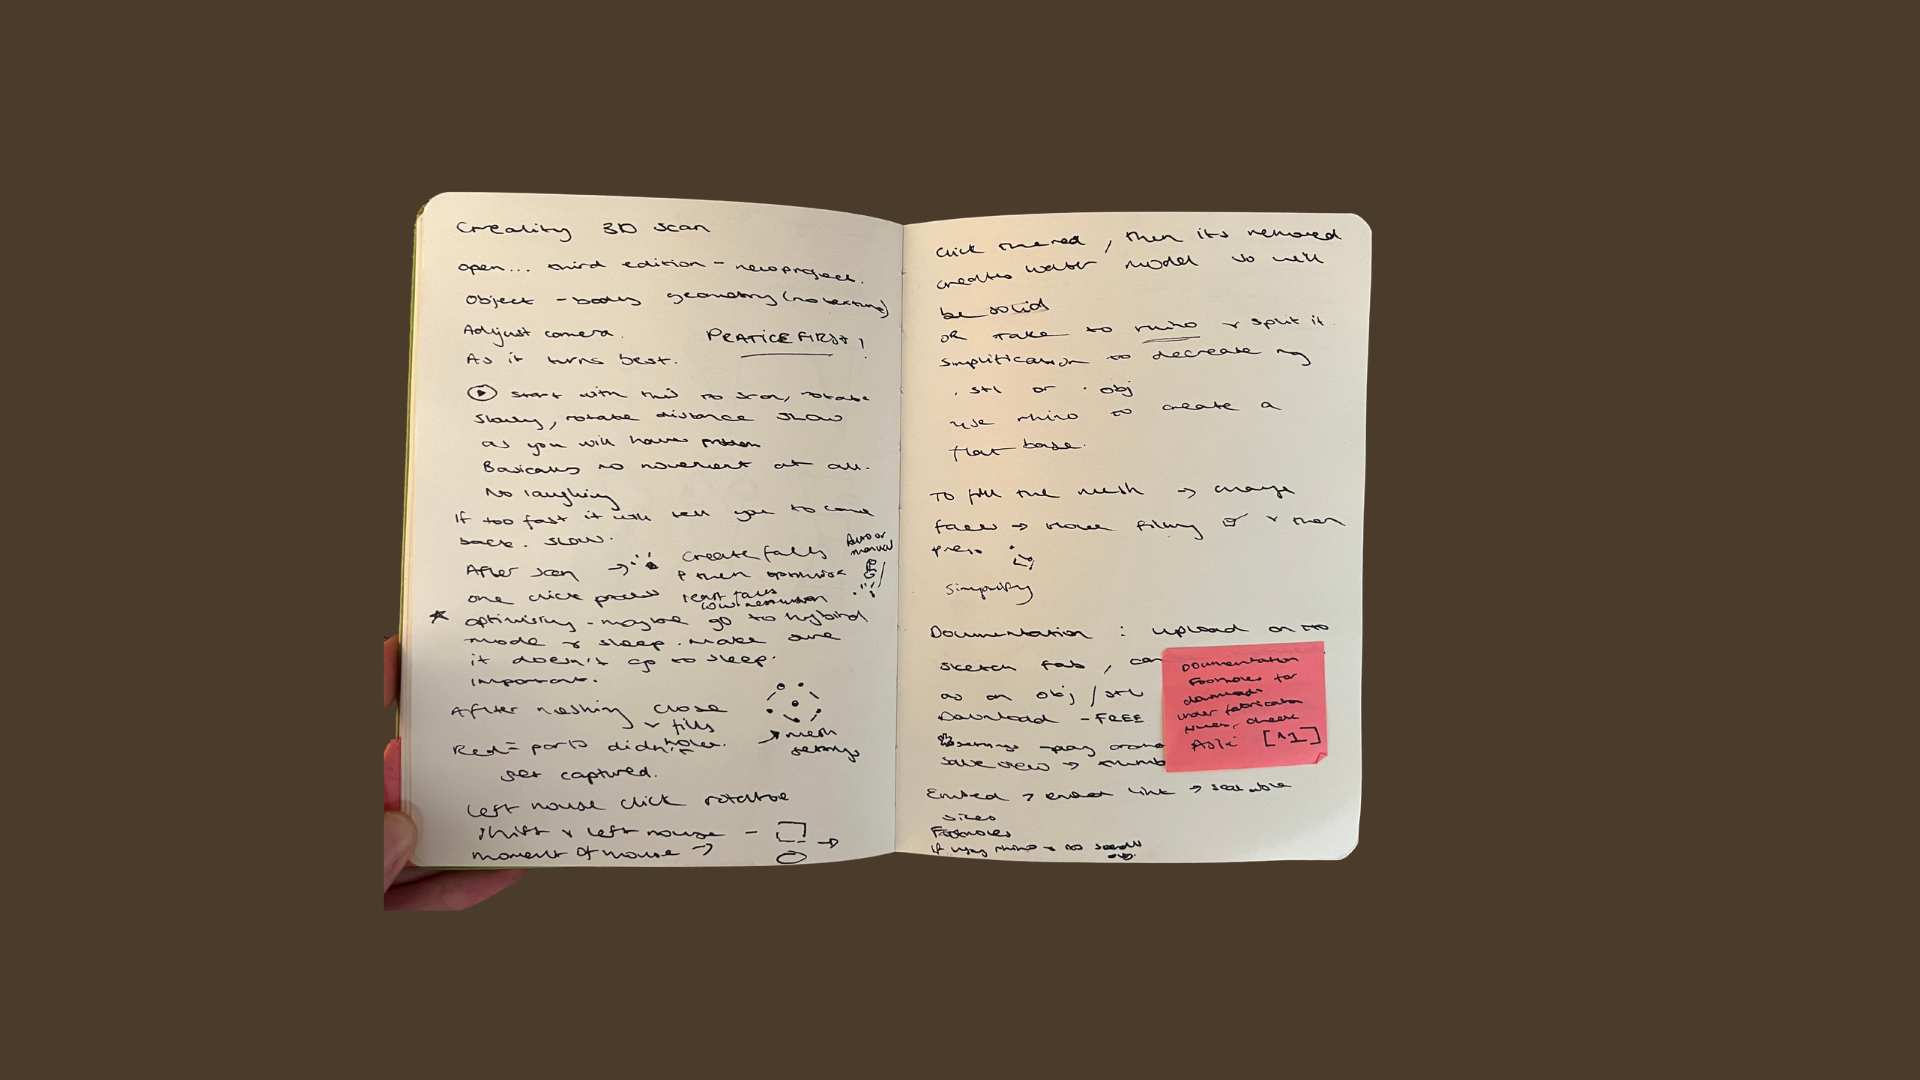 Creality 3D scan
open... third edition - new project.
Object - body geometry (no texture)
Adjust camera.
PRATICE FIRST!
As it turns best.
start with this to scan, rotate
slowly, rotate distance slow
as you will have problem
Basically no movement at all.
No laughing
If too fast it will tell you to come
back. slow.
After scan → create fully
Auto or
manual
& then optimise
one click process
low resolution
* optimising - maybe go to hybrid
mode & sleep. Make sure
it doesn't go to sleep.
important.
After meshing close
& fills
holes.
→ mesh
settings
Red = parts didn't
get captured.
Left mouse click rotate
Shift & left mouse -
moment of mouse →
click the red, then its removed
creates water model so will
be solid
OR take to rhino & split it.
simplification to decrease
.stl or .obj
use rhino to create a
flat base.
To fill the mesh → change
faces → filling & then
press
Simplify
Documentation : upload on to
sketch fab, can
as an obj / stl
Download - FREE
settings
save view → thumb
Embed → embed link → scalable
sizes
Footnotes
if using rhino & no
Documentation
Footnotes for
downloads
under fabrication
check
Ask [^1]